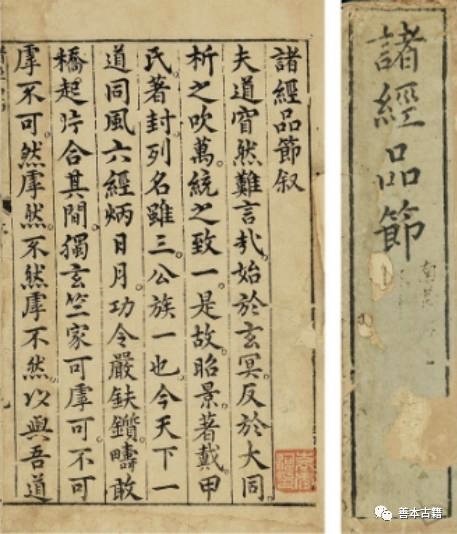 諸經品節叙
夫道窅然難言㢤。始於玄冥。反於大同。
析之吹萬。統之致一。是故昭景著戴。甲
氏著封列名雖三。公族一也。今天下一
道同風六經炳日月。功令嚴鈇鑕。疇敢
橋起片合其間。獨玄竺家可虖可。不可
虖不可。然虖然。不然虖不然。以與吾道
諸經品節
善本古籍